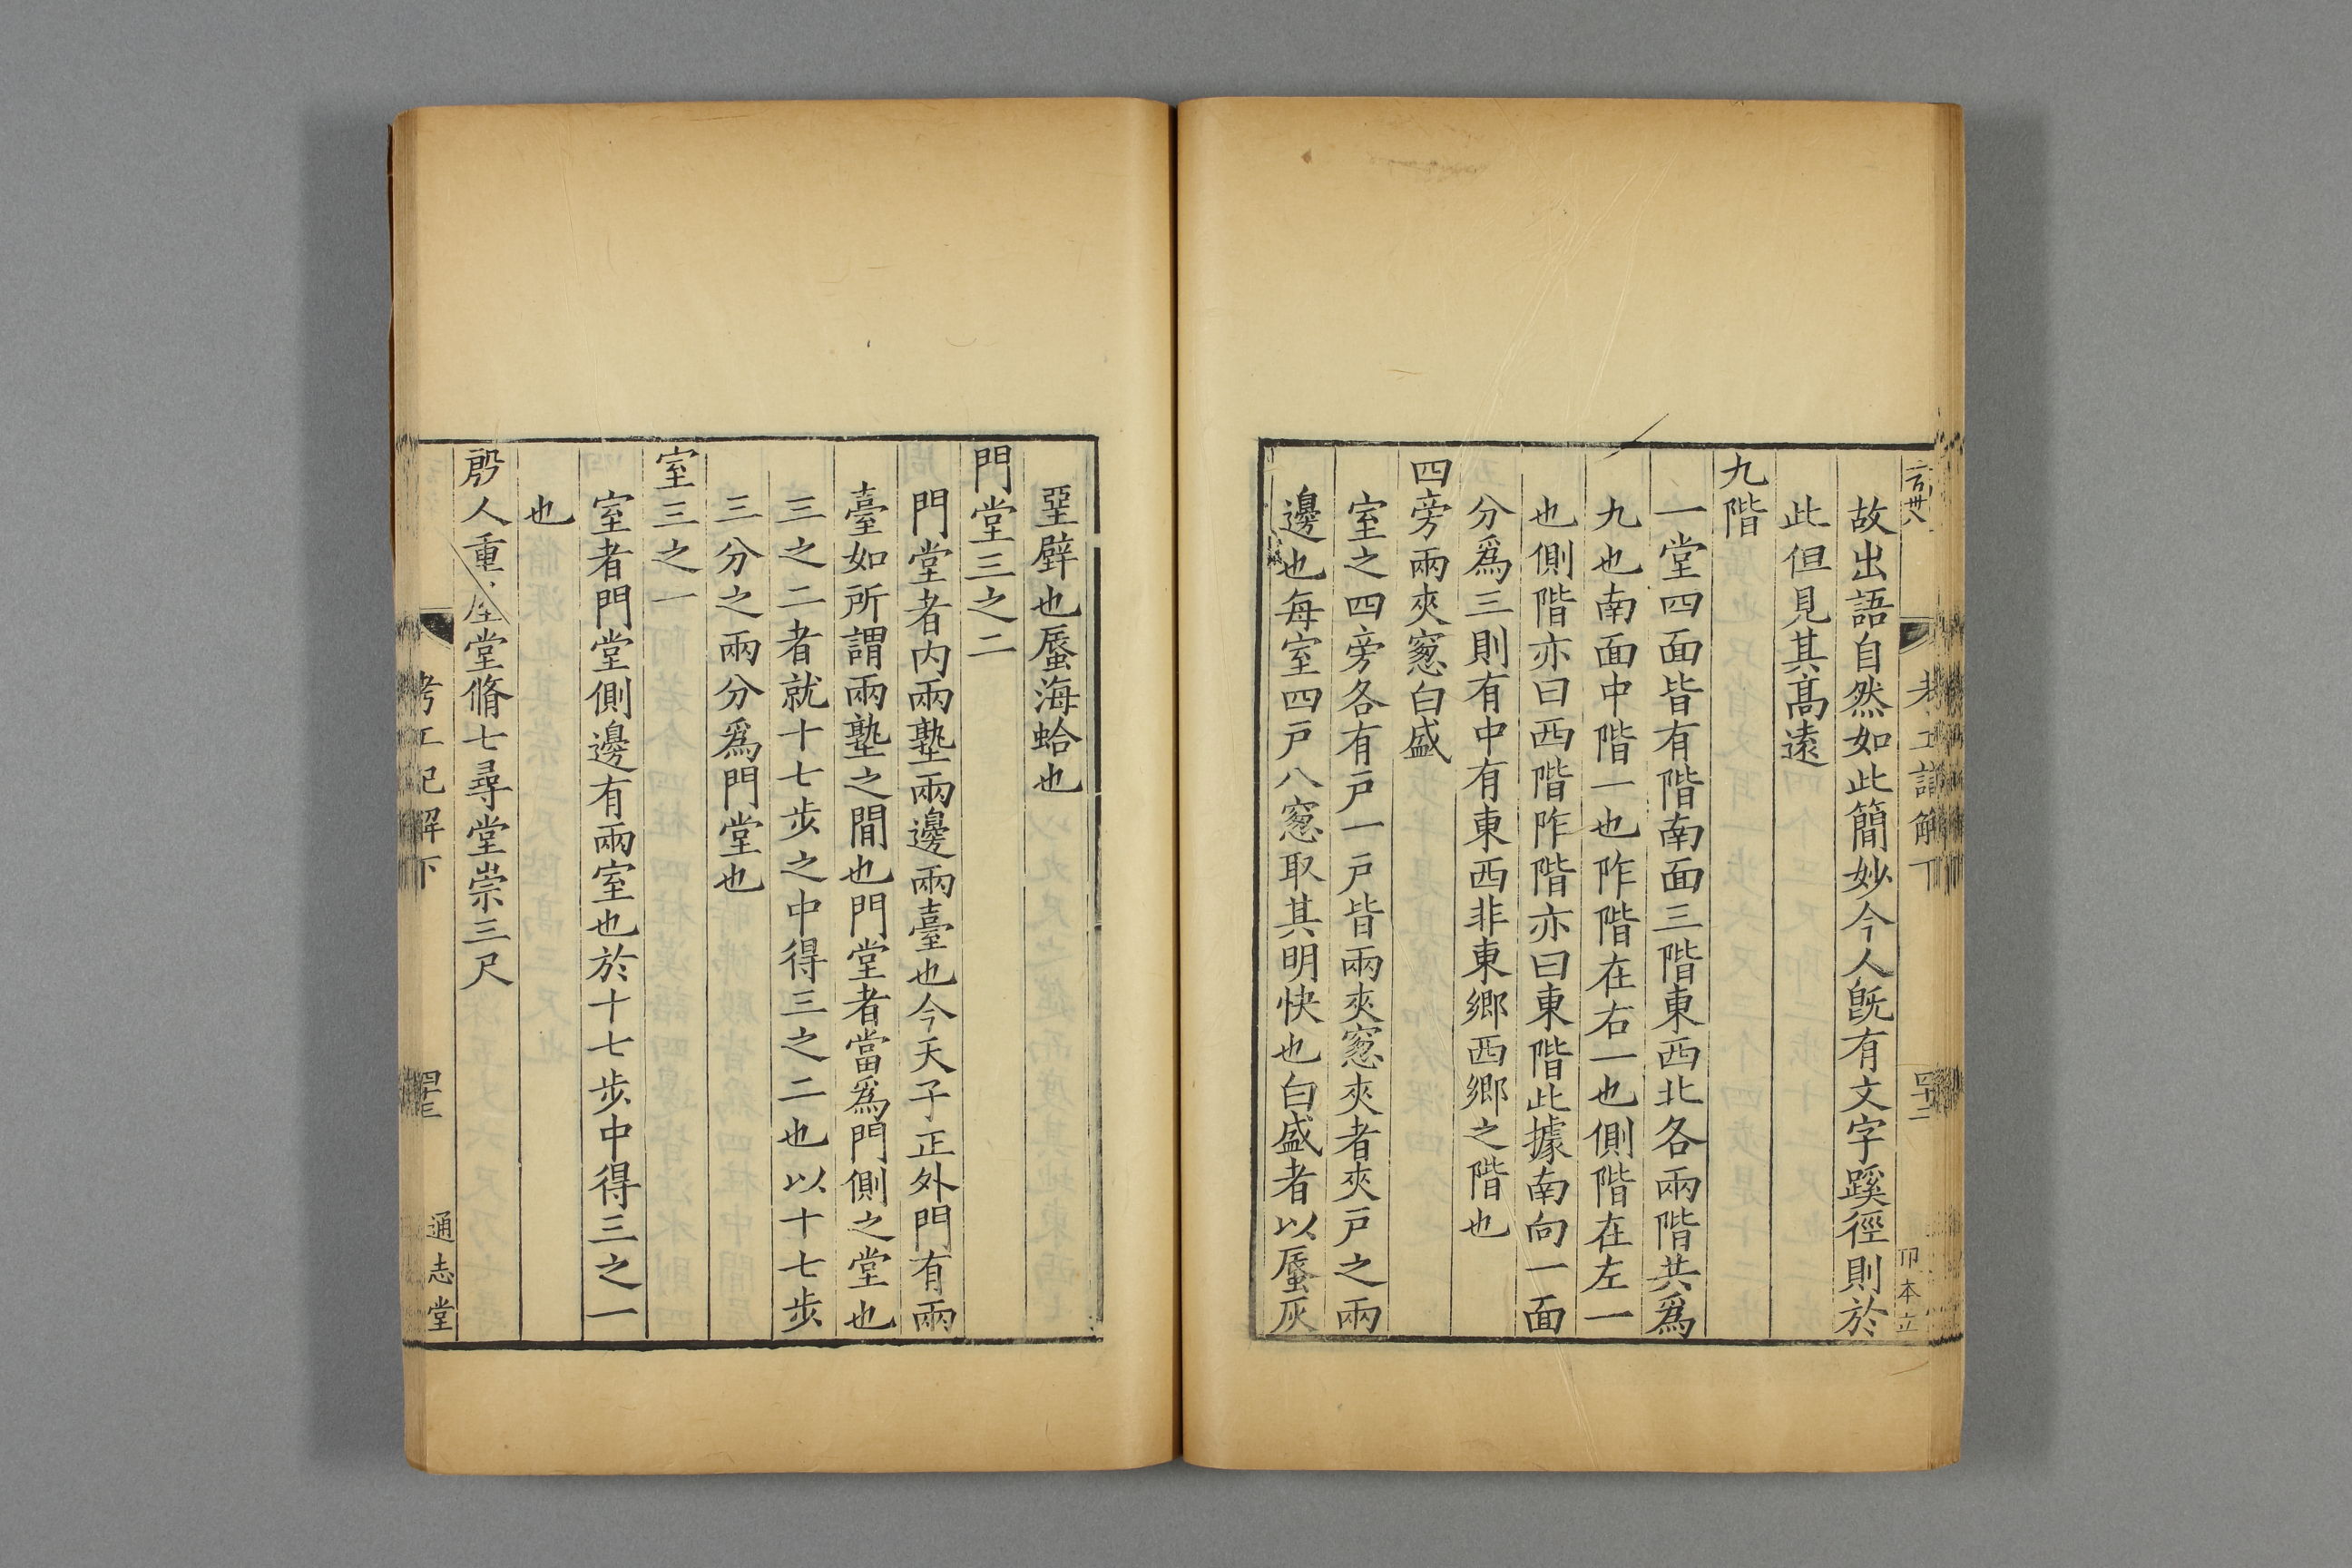 故出語自然如此簡妙今人旣有文字蹊徑則於
此但見其髙遠
九階
一堂四面皆有階南面三階東西北各兩階共爲
九也南面中階一也阼階在右一也側階在左一
也側階亦曰西階阼階亦曰東階此據南向一面
分爲三則有中有東西非東鄉西鄉之階也
四旁兩夾窻白盛
室之四旁各有戸一戸皆兩夾窻夾者夾戸之兩
邊也每室四戸八窻取其明快也白盛者以蜃灰
堊壁也蜃海蛤也
門堂三之二
門堂者内兩塾兩邊兩臺也今天子正外門有兩
臺如所謂兩塾之間也門堂者當爲門側之堂也
三之二者就十七步之中得三之二也以十七步
三分之兩分爲門堂也
室三之一
室者門堂側邊有兩室也於十七步中得三之一
也
殷人重堂脩七尋堂崇三尺
考工記解下
四十三
通志堂